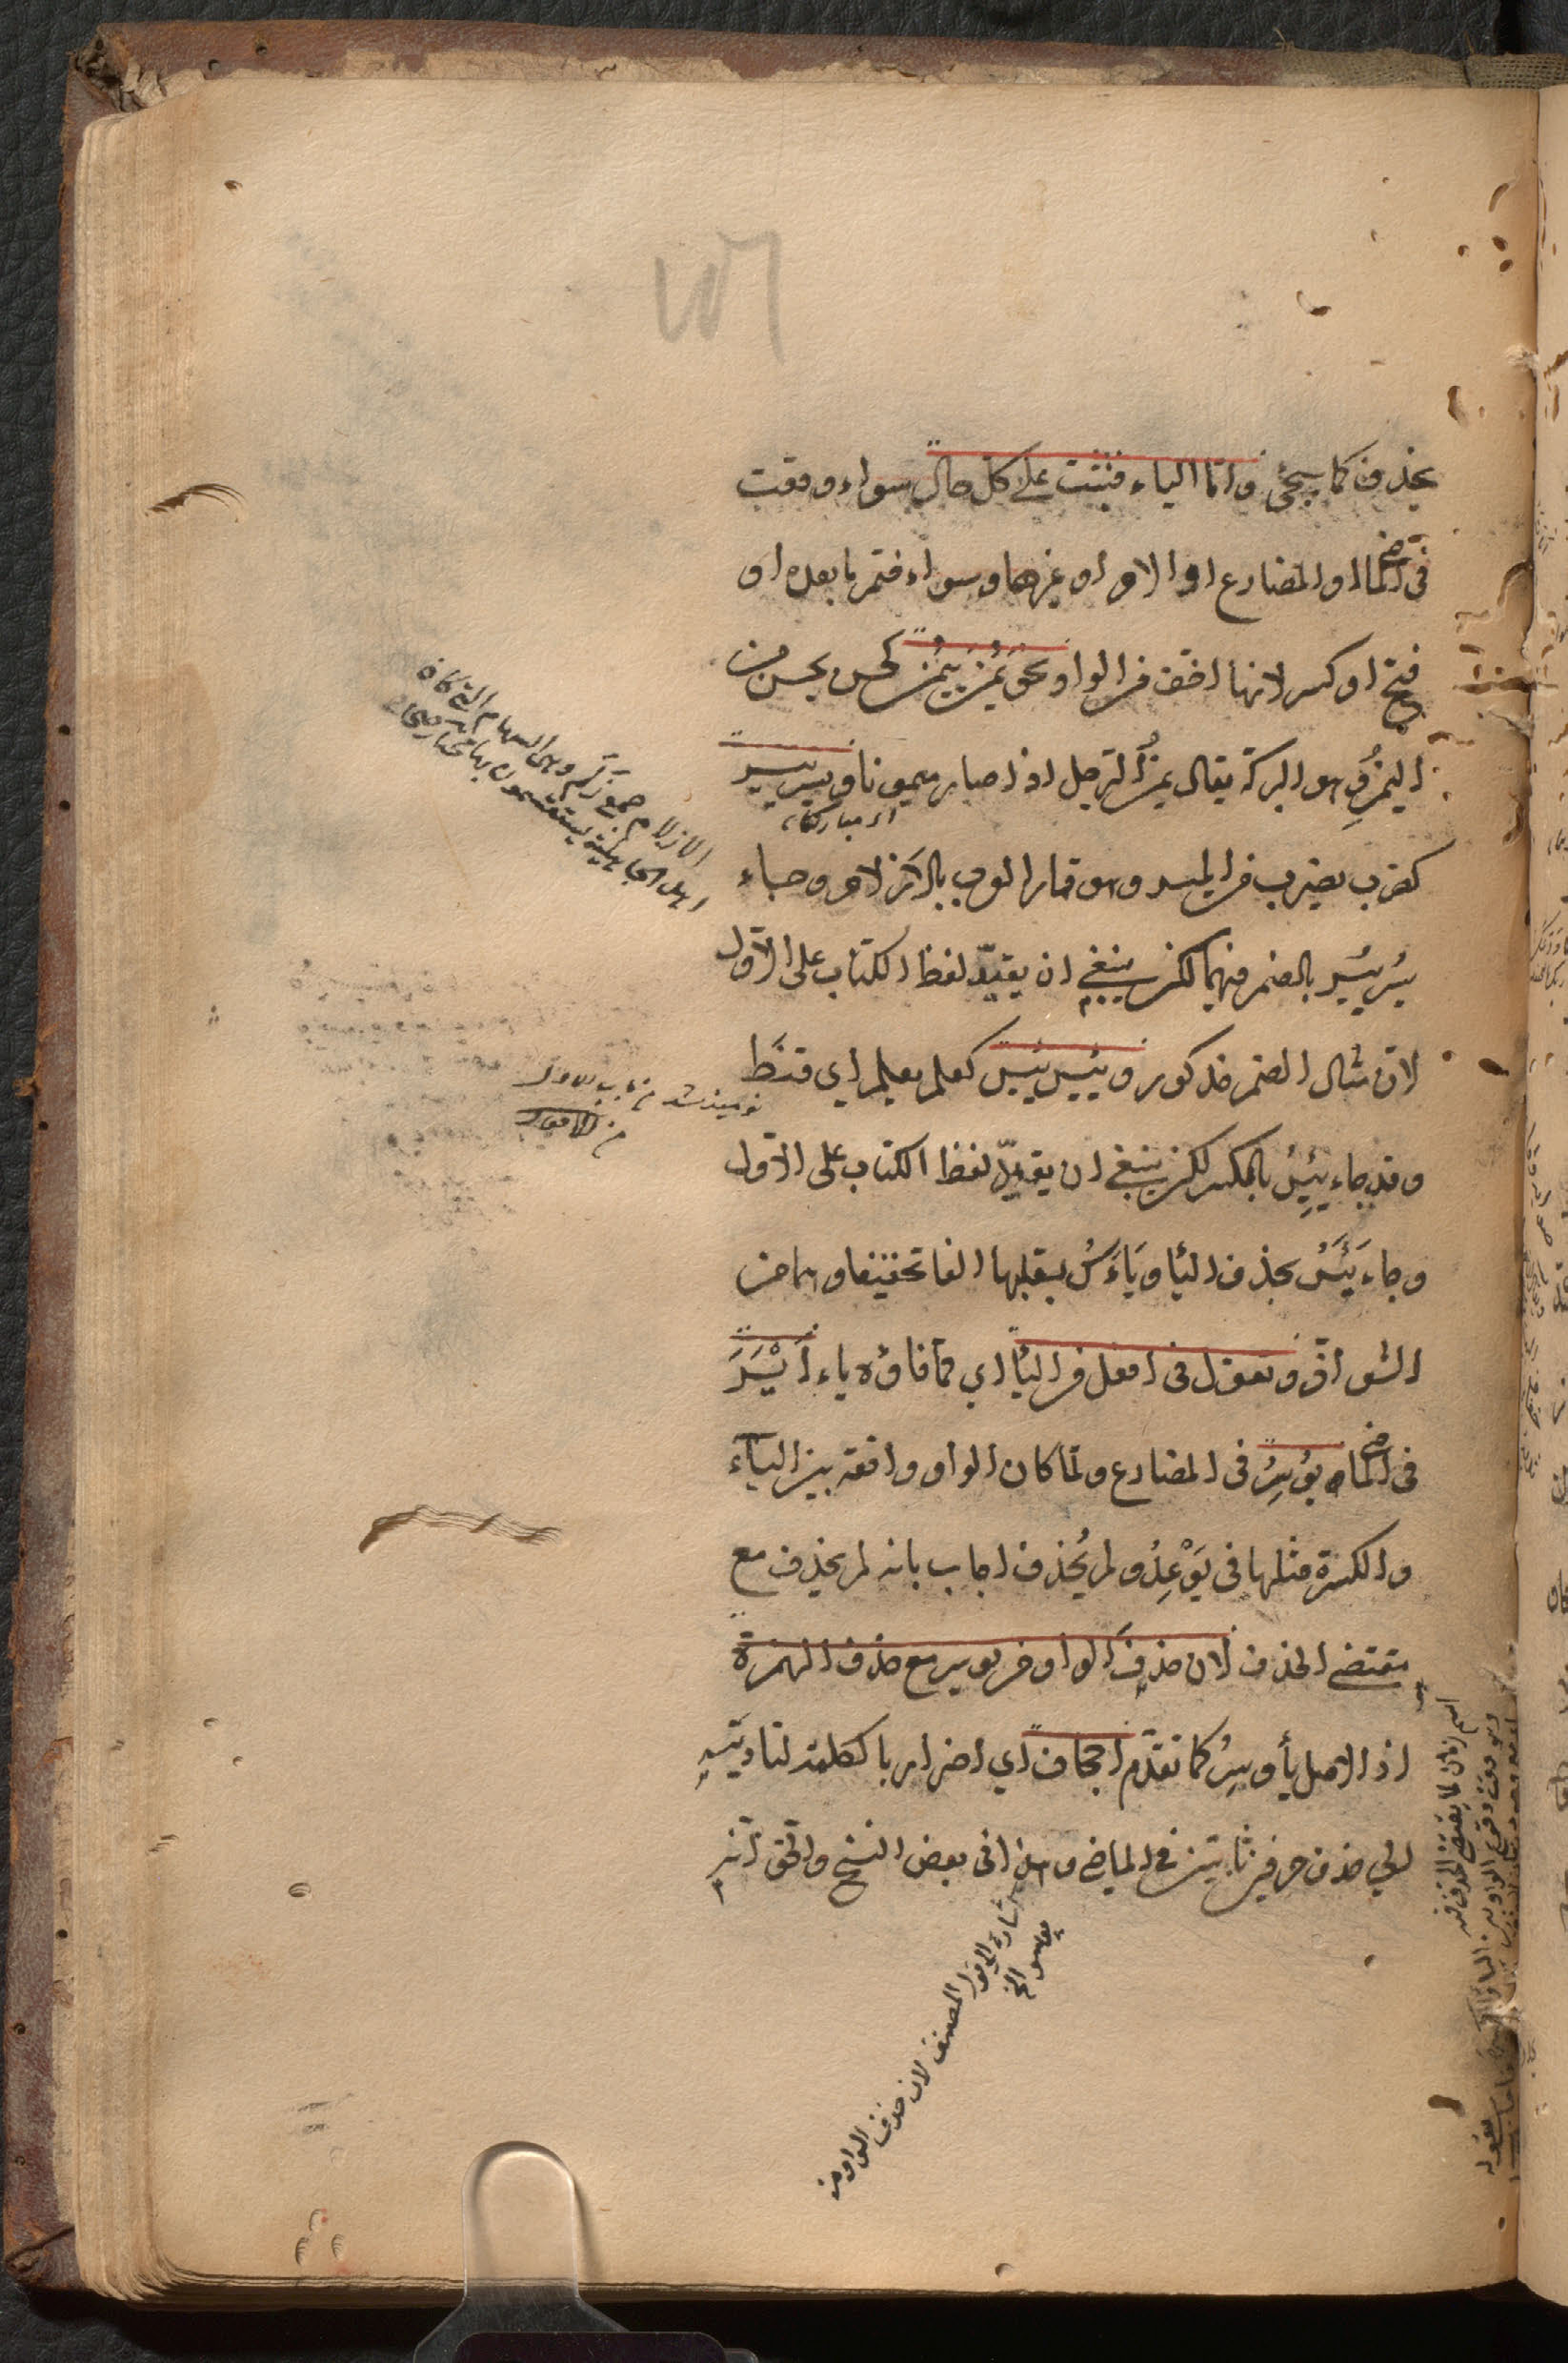 يحذف كما سيجئ واما الياء فتثبت على كل حال سواء وقعت
في الماضي او المضارع او الامر او غيرهما وسواء ضم ما بعده او
فتح او كسر لانها اخف من الواو نحو يَمُنَ يَيْمُن كحسن يحسن من
اليُمْنِ وهو البركة يقال يمن الرجل اذا صار ميمونا ويسر ييسر
اي مباركا
كضرب يضرب من الميسر وهو قمار العرب بالازلام وجاء
يسُر ييسُر بالضم فيهما لكن ينبغي ان يقيد لفظ الكتاب على الاول
لان مثال الضم مذكور ويئس ييئس كعلم يعلم اي قنط
وقد جاء ييئِسُ بالكسر لكن ينبغي ان يقيد لفظ الكتاب على الاول
وجاء يَئَسُ بحذف اليا ويَاءَسُ بقلبها الفا تخفيفا وهما من
الشواذ وتقول في افعل من اليا اي مما فاؤه ياء اَيْسَرَ
في الماضي يوُسِرُ في المضارع ولما كان الواو واقعة بين الياء
والكسرة مثلها في يَوْعِدُ ولم يُحذف اجاب بانه لم يحذف مع
مقتضي الحذف لان حذف الواو من يوسر مع حذف الهمزة
اذ الاصل يأوسِرُ كما تقدم اجحاف اي اضرار بالكلمة لتاديته
الي حذف حرفين ثابتين في الماضي وهذا في بعض النسخ والحق انه
الازلام جمع زَلَم وهى السهام التي كان
اهل الجاهلية يستقسمون بها مختار صحاح
نوميد شد من باب
اشارة الى قول المصنف لان حذف الواو من
يوسر الخ